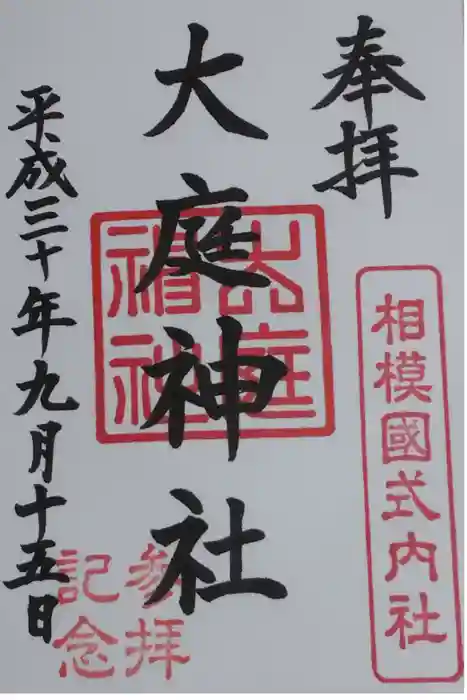 奉拝
相模國式内社
大庭神社
大庭神社
参拝
記念
平成三十年九月十五日